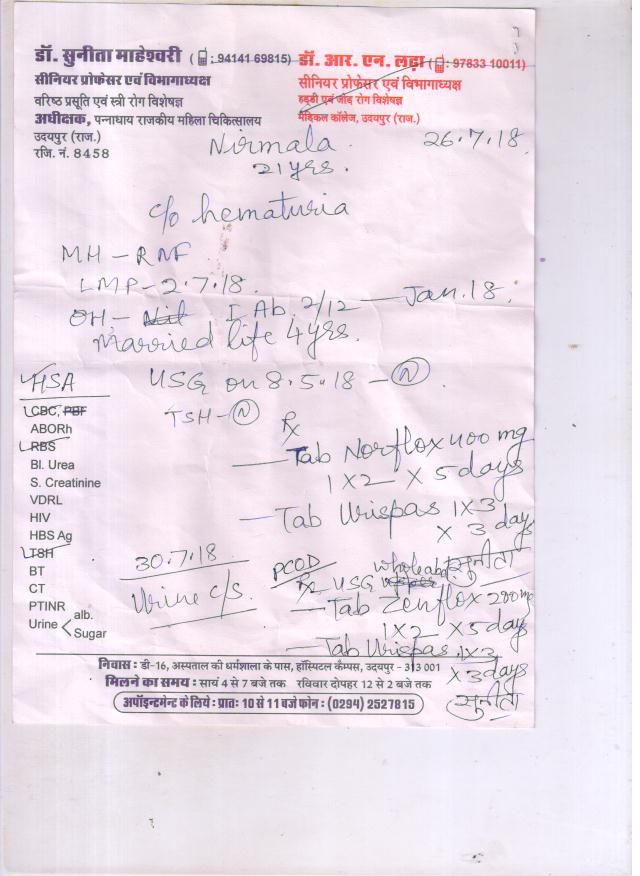 डॉ. सुनीता माहेश्वरी (: 94141 69815)
सीनियर प्रोफेसर एवं विभागाध्यक्ष
वरिष्ठ प्रसूति एवं स्त्री रोग विशेषज्ञ
अधीक्षक, पन्नाधाय राजकीय महिला चिकित्सालय
उदयपुर (राज.)
रजि. नं. 8458
डॉ. आर. एन. लढ़ा (: 97833 10011)
सीनियर प्रोफेसर एवं विभागाध्यक्ष
हड्डी एवं जोड़ रोग विशेषज्ञ
मेडिकल कॉलेज, उदयपुर (राज.)
Nirmala 26.7.18
21 yrs.
c/o hematuria
MH - RNF
LMP - 2.7.18.
OH - Nil I Ab. 2/12 — Jan. 18.
Married life 4 yrs.
USG on 8.5.18 - (N)
TSH - (N)
HSA
CBC, PBF
ABORh
RBS
Bl. Urea
S. Creatinine
VDRL
HIV
HBS Ag
TSH
BT
CT
PTINR
Urine < alb.
Sugar
Rx
— Tab Norflox 400 mg
1 X 2 X 5 days
— Tab Urispas 1 X 3
X 3 days
सुनीता
30.7.18
Urine c/s
PCOD
Rx USG whole abd
— Tab Zenflox 200 mg
1 X 2 X 5 days
— Tab Urispas 1 X 3
X 3 days
सुनीता
निवास : डी-16, अस्पताल की धर्मशाला के पास, हॉस्पिटल कैम्पस, उदयपुर - 313 001
मिलने का समय : सायं 4 से 7 बजे तक रविवार दोपहर 12 से 2 बजे तक
अपॉइन्टमेन्ट के लिये : प्रातः 10 से 11 बजे फोन : (0294) 2527815